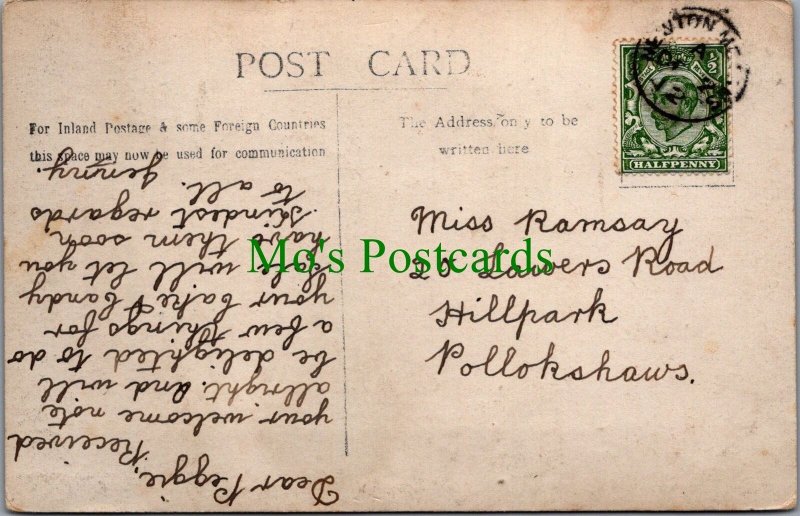 POST CARD
For Inland Postage & some Foreign Countries
this space may now be used for communication
The Address only to be
written here
HALFPENNY
Miss Ramsay
Lawers Road
Hillpark
Pollokshaws.
Dear Peggie,
Received
your welcome note
allright. and will
be delighted to do
a few things for
your Cake & Candy
Sale will let you
have them soon
Kindest regards
to all.
Jenny.
Mo's Postcards